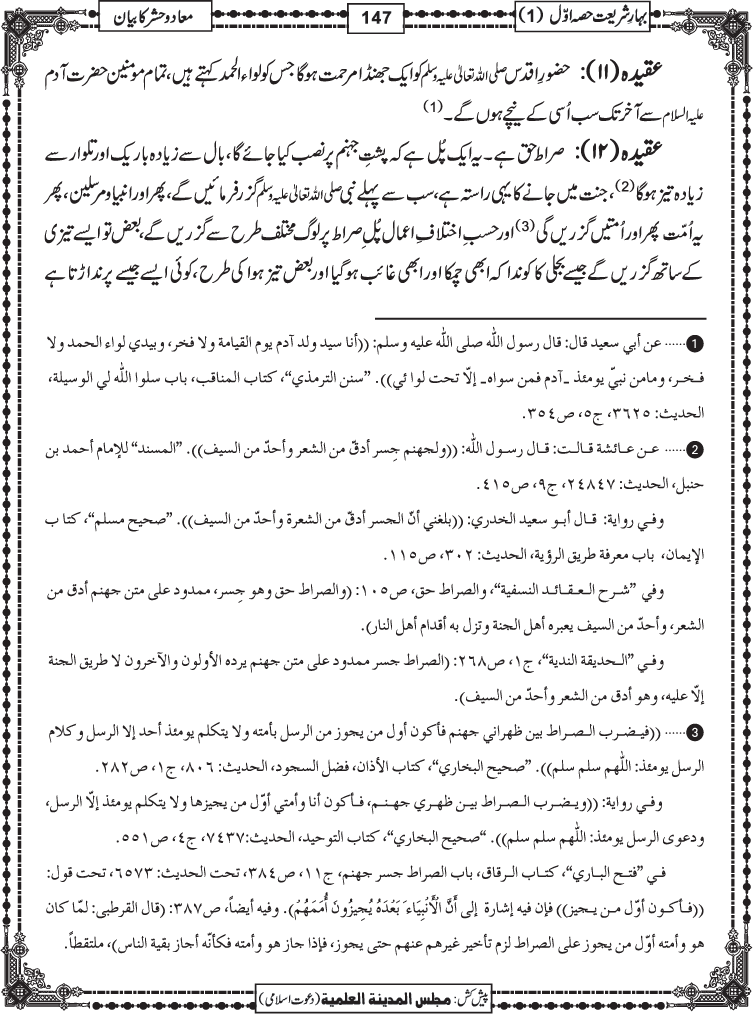 بہارِشریعت حصہ اوّل (1)
147
معاد و حشر کا بیان
عقیدہ (۱۱): حضورِ اقدس صلی اللہ تعالیٰ علیہ وسلم کو ایک جھنڈا مرحمت ہوگا جس کو لواء الحمد کہتے ہیں، تمام مومنین حضرت آدم
علیہ السلام سے آخر تک سب اُسی کے نیچے ہوں گے۔ (1)
عقیدہ (۱۲): صراط حق ہے۔ یہ ایک پُل ہے کہ پشتِ جہنم پر نصب کیا جائے گا، بال سے زیادہ باریک اور تلوار سے
زیادہ تیز ہوگا (2)، جنت میں جانے کا یہی راستہ ہے، سب سے پہلے نبی صلی اللہ تعالیٰ علیہ وسلم گزر فرمائیں گے، پھر اور انبیا و مرسلین، پھر
یہ اُمّت پھر اور اُمتیں گزریں گی (3) اور حسبِ اختلافِ اعمال پُلِ صراط پر لوگ مختلف طرح سے گزریں گے، بعض تو ایسے تیزی
کے ساتھ گزریں گے جیسے بجلی کا کوندا کہ ابھی چمکا اور ابھی غائب ہوگیا اور بعض تیز ہوا کی طرح، کوئی ایسے جیسے پرند اڑتا ہے
1 ...... عن أبي سعيد قال: قال رسول اللّٰه صلى اللّٰه عليه وسلم: ((أنا سيد ولد آدم يوم القيامة ولا فخر، وبيدي لواء الحمد ولا
فـخـر، ومامن نبيّ يومئذ ـ آدم فمن سواه ـ إلّا تحت لوائي)). ”سنن الترمذي“، كتاب المناقب، باب سلوا اللّٰه لي الوسيلة،
الحديث: ٣٦٢٥، ج٥، ص٣٥٤.
2 ...... عـن عـائشة قـالـت: قـال رسـول اللّٰه: ((ولجهنم جِسر أدقّ من الشعر وأحدّ من السيف)). ”المسند“ للإمام أحمد بن
حنبل، الحديث: ٢٤٨٤٧، ج٩، ص٤١٥.
وفـي رواية: قـال أبـو سعيد الخدري: ((بلغني أنّ الجسر أدقّ من الشعرة وأحدّ من السيف)). ”صحيح مسلم“، كتاب
الإيمان، باب معرفة طريق الرؤية، الحديث: ٣٠٢، ص١١٥.
وفي ”شـرح الـعـقـائـد النسفية“، والصراط حق، ص١٠٥: (والصراط حق وهو جِسر، ممدود على متن جهنم أدق من
الشعر، وأحدّ من السيف يعبره أهل الجنة وتزل به أقدام أهل النار).
وفـي ”الـحديقة الندية“، ج١، ص٢٦٨: (الصراط جسر ممدود على متن جهنم يرده الأولون والآخرون لا طريق الجنة
إلّا عليه، وهو أدق من الشعر وأحدّ من السيف).
3 ...... ((فيـضـرب الـصـراط بين ظهراني جهنم فأكون أول من يجوز من الرسل بأمته ولا يتكلم يومئذ أحد إلا الرسل وكلام
الرسل يومئذ: اللّٰهم سلم سلم)). ”صحيح البخاري“، كتاب الأذان، فضل السجود، الحديث: ٨٠٦، ج١، ص٢٨٢.
وفـي رواية: ((ويـضـرب الـصـراط بيـن ظهـري جهنـم، فـأكون أنا وأمتي أوّل من يجيزها ولا يتكلم يومئذ إلّا الرسل،
ودعوى الرسل يومئذ: اللّٰهم سلم سلم)). ”صحيح البخاري“، كتاب التوحيد، الحديث:٧٤٣٧، ج٤، ص٥٥١.
فـي ”فتـح البـاري“، كتـاب الـرقاق، باب الصراط جسر جهنم، ج١١، ص٣٨٤، تحت الحديث: ٦٥٧٣، تحت قول:
((فـأكـون أوّل مـن يـجيز)) فإن فيه إشارة إلى أَنَّ الْأَنْبِيَاءَ بَعْدَهُ يُجِيزُونَ أُمَمَهُمْ). وفيه أيضاً، ص٣٨٧: (قال القرطبي: لمّا كان
هو وأمته أوّل من يجوز على الصراط لزم تأخير غيرهم عنهم حتى يجوز، فإذا جاز هو وأمته فكأنّه أجاز بقية الناس)، ملتقطاً.
پیش کش: مجلس المدینۃ العلمیۃ (دعوت اسلامی)